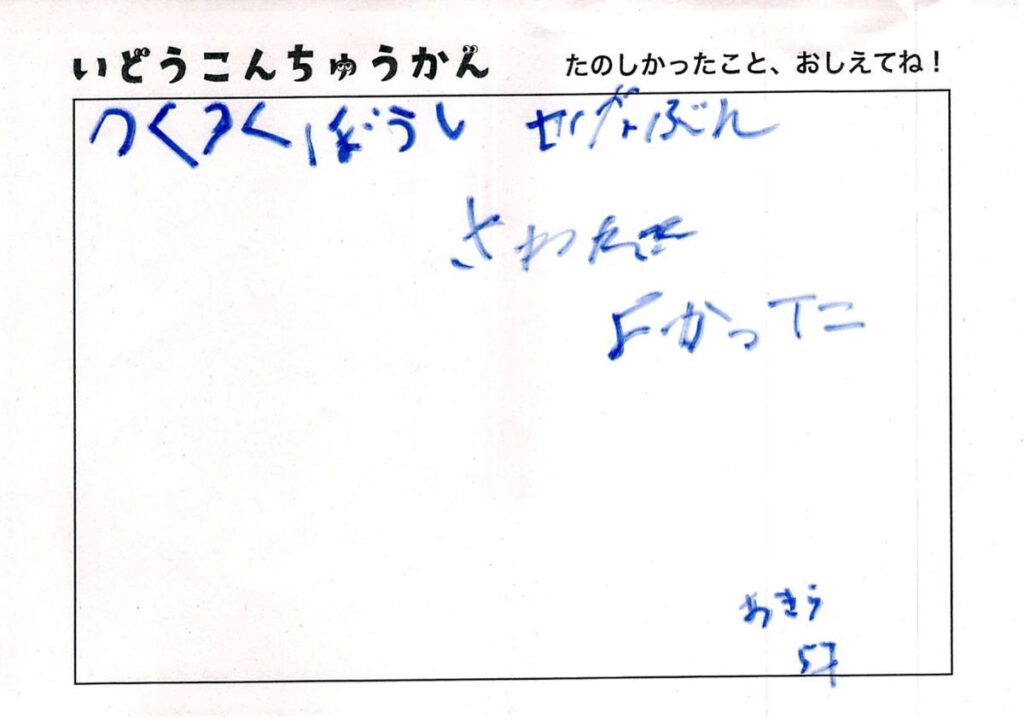 いどうこんちゅうかん
たのしかったこと、おしえてね！
つくつくぼうし
さわ
よかった
あきら
5才